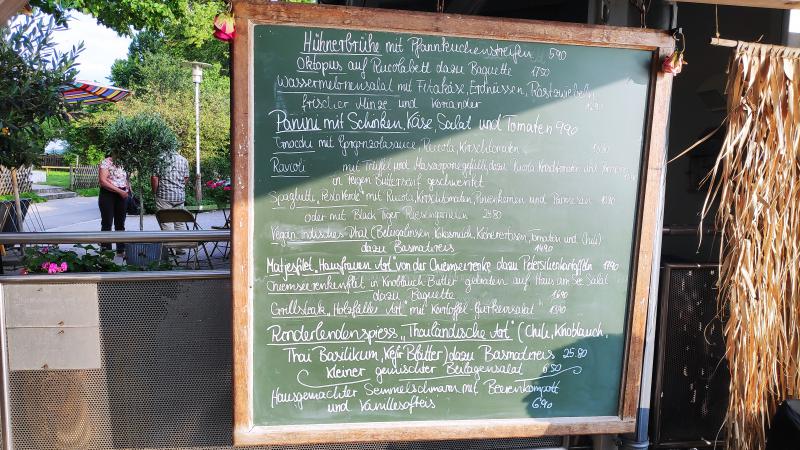 Hühnerbrühe mit Pfannkuchenstreifen 5.90
Oktopus auf Rucolabett dazu Baguette 17.50
Wassermelonensalat mit Fetakäse, Erdnüssen, Röstzwiebeln,
frischer Minze und Koriander
Panini mit Schinken, Käse, Salat und Tomaten 9.90
Gnocchi mit Gorgonzolasauce, Rucola, Kirschtomaten
Ravioli mit Trüffel und Mascarponegefüllt, dazu Rucola Kirschtomaten und Parmesan
in feiger Butter geschwenkt
Spaghetti "Pesto Verde" mit Rucola, Kirschtomaten, Pinienkernen und Parmesan
oder mit Black Tiger Riesengarnelen
Vegan, indisches Dhal (Belugalinsen, Kokosmilch, Kichererbsen, Tomaten und Chili)
dazu Basmatireis 14.90
Matjesfilet "Hausfrauen Art" von der Chiemseerenke dazu Petersilienkartoffeln 17.90
Chiemseerenkenfilet in Knoblauch Butter gebraten auf Haus am See Salat
dazu Baguette
Grillsteak "Holzfäller Art" mit Kartoffel-Gurkensalat
Rinderlendenspiess "Thailändische Art" (Chili, Knoblauch,
Thai Basilikum, Kefir Blätter) dazu Basmatireis 25.80
kleiner gemischter Beilagensalat 6.50
Hausgemachter Semmelschmarrn mit Beerenkompott
und Vanillesofteis 6.90